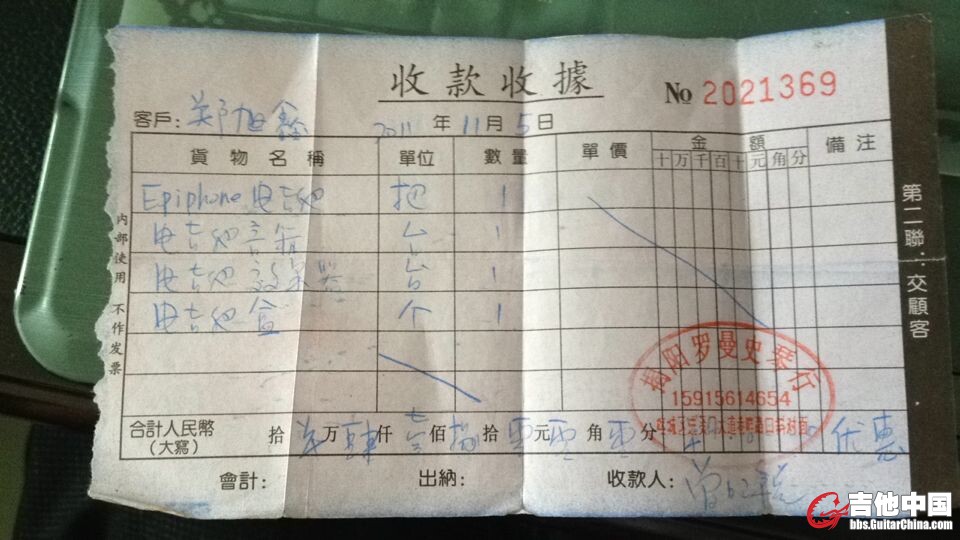 收款收據
№ 2021369
客戶: 郑旭鑫 2011 年 11 月 5 日
貨物名稱 單位 數量 單價 金額 備注
十 万 千 百 十 元 角 分
Epiphone 电吉他 把 1
电吉他音箱 台 1
电吉他效果器 台 1
电吉他盒 个 1
内部使用 不作发票
第二聯:交顧客
揭阳罗曼史琴行
15915614654
合計人民幣 拾 万 仟 佰 拾 元 角 分 优惠
(大寫)
會計: 出納: 收款人:
吉他中国
bbs.GuitarChina.com